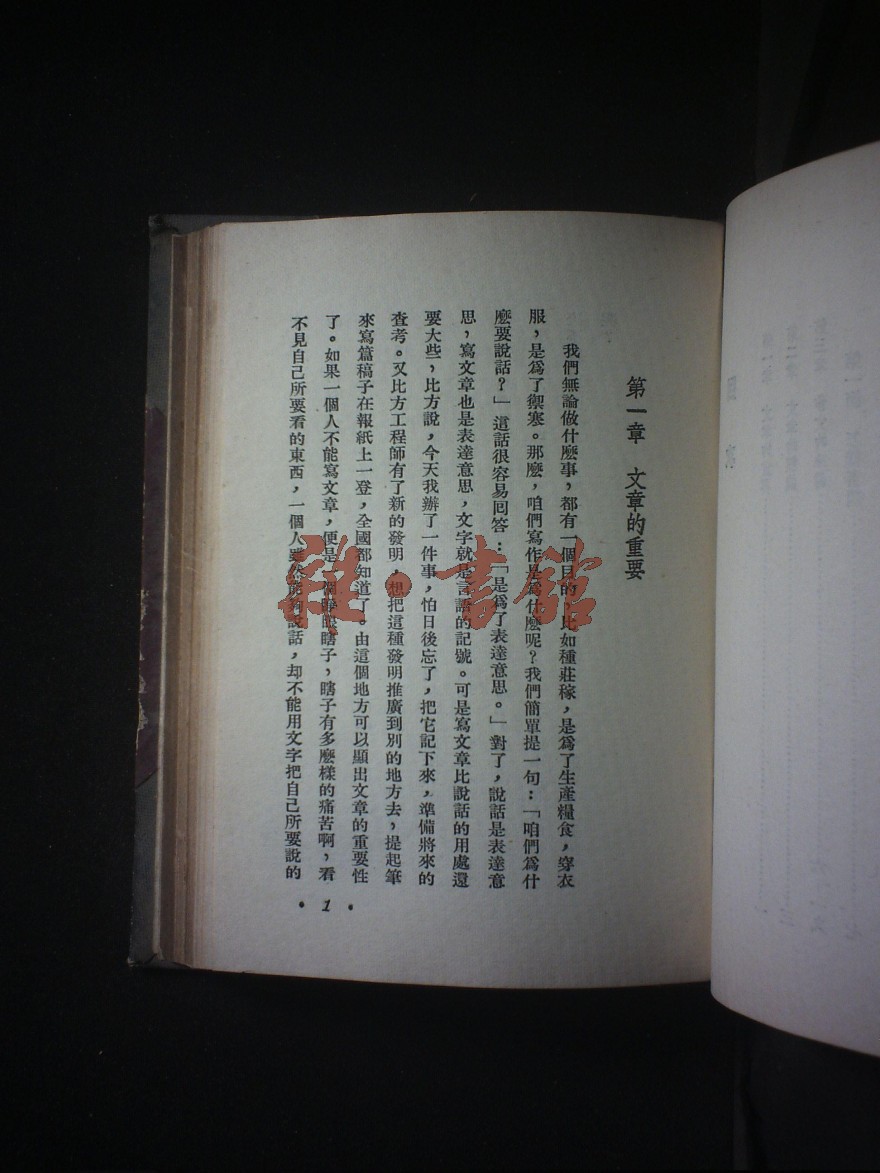 第一章　文章的重要
我們無論做什麽事，都有一個目的，比如種莊稼，是爲了生產糧食，穿衣
服，是爲了禦寒。那麽，咱們寫作是爲什麽呢？我們簡單提一句：「咱們爲什
麽要說話？」這話很容易回答：「是爲了表達意思。」對了，說話是表達意
思，寫文章也是表達意思，文字就是言語的記號。可是寫文章比說話的用處還
要大些，比方說，今天我辦了一件事，怕日後忘了，把它記下來，準備將來的
查考。又比方工程師有了新的發明，想把這種發明推廣到別的地方去，提起筆
來寫篇稿子在報紙上一登，全國都知道了。由這個地方可以顯出文章的重要性
了。如果一個人不能寫文章，便是一個睜眼瞎子，瞎子有多麽樣的痛苦啊，看
不見自己所要看的東西，一個人雖然能夠說話，却不能用文字把自己所要說的
• 1 •
雜·書館